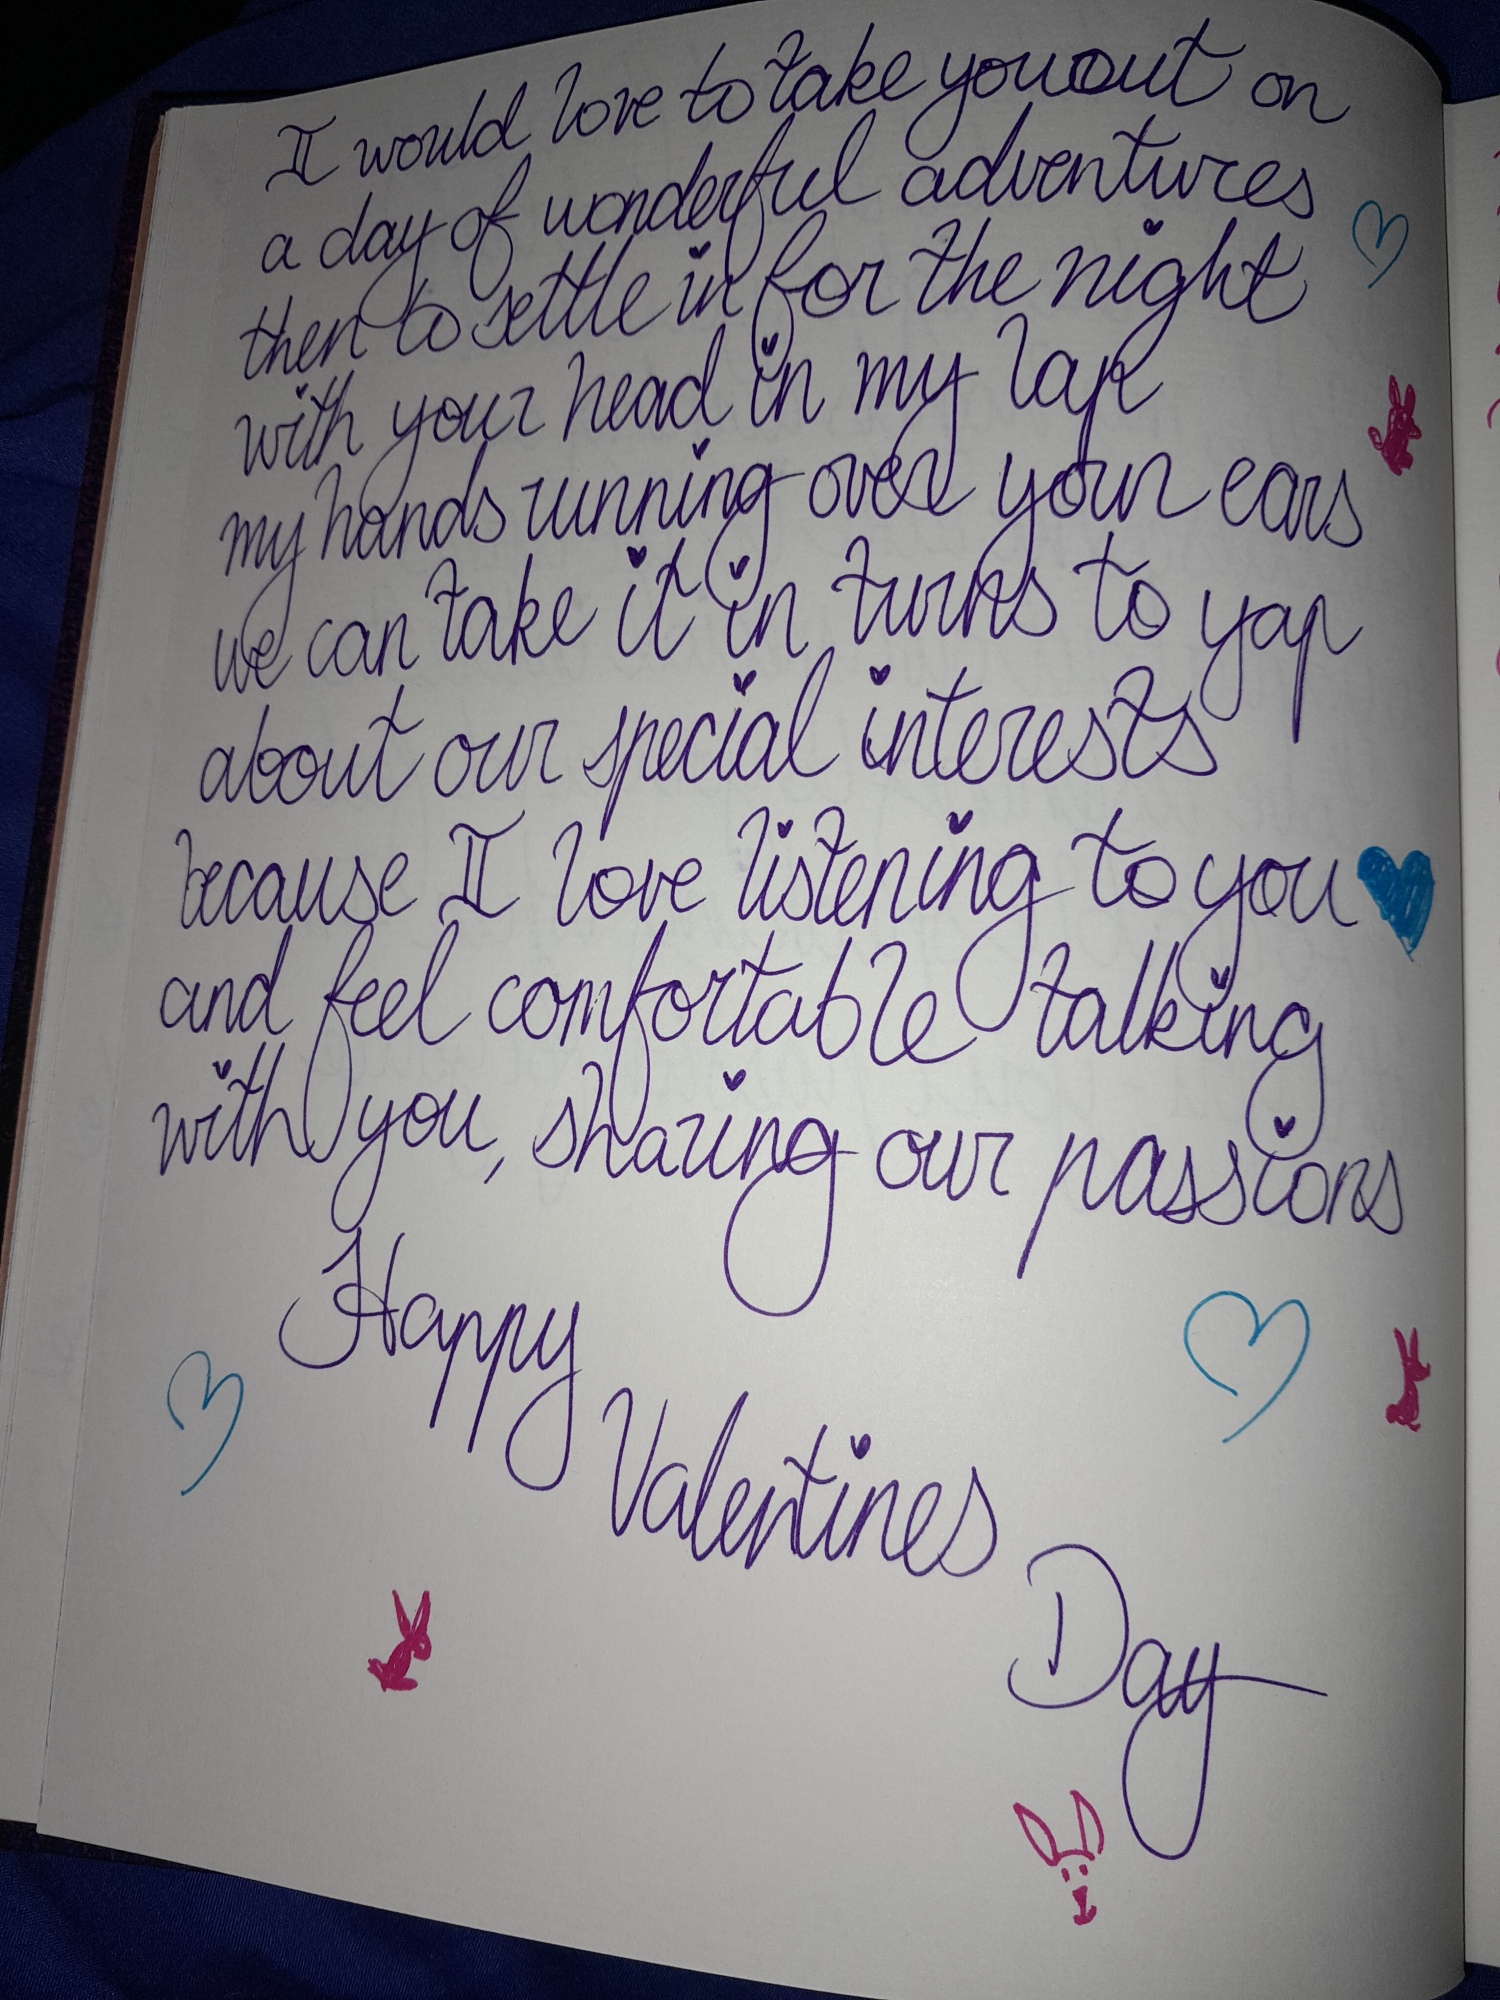 I would love to take you out on
a day of wonderful adventures
then to settle in for the night
with your head in my lap
my hands running over your ears
we can take it in turns to yap
about our special interests
because I love listening to you
and feel comfortable talking
with you, sharing our passions
Happy
Valentines
Day